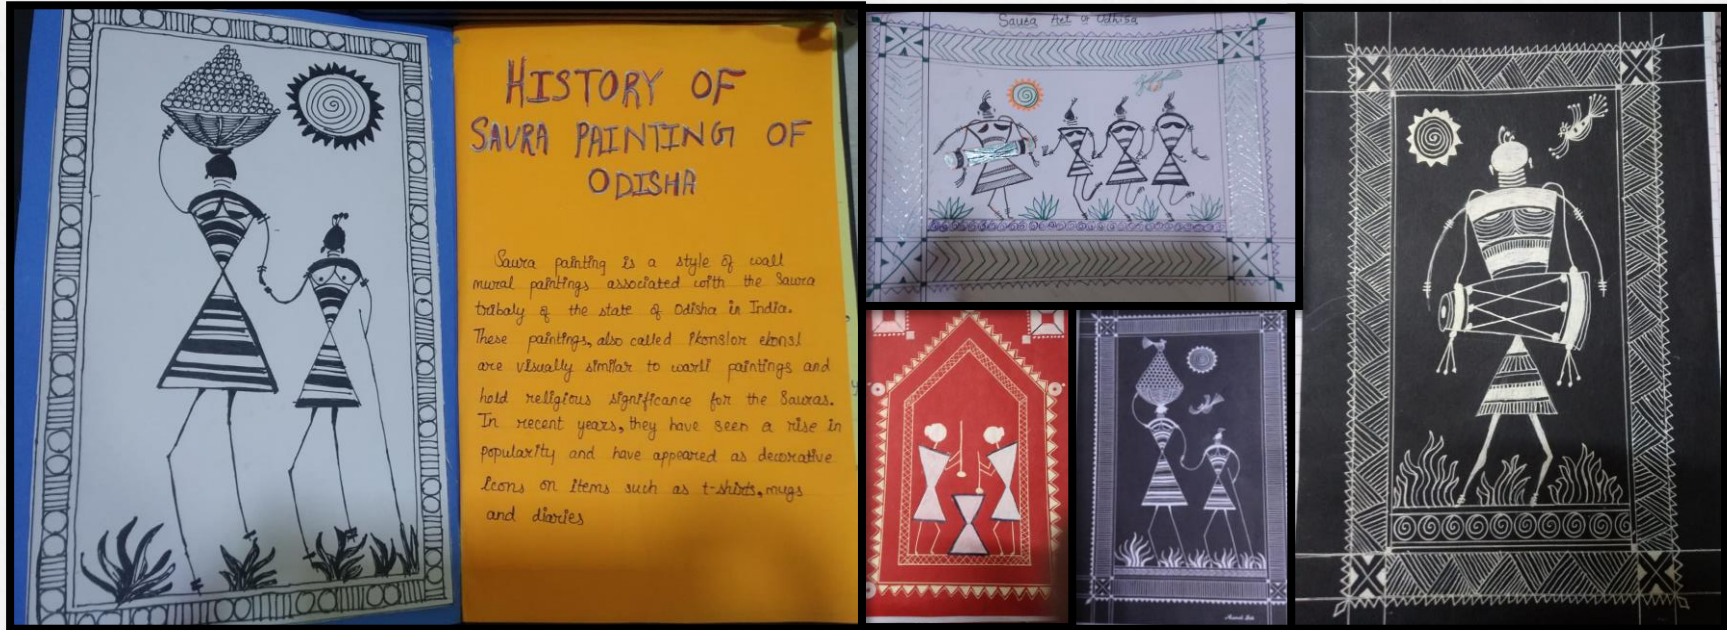 HISTORY OF
SAURA PAINTING OF
ODISHA
Saura painting is a style of wall
mural paintings associated with the Saura
tribaly of the state of Odisha in India.
These paintings, also called ikonslor ekonsl
are visually similar to warli paintings and
hold religious significance for the Sauras.
In recent years, they have seen a rise in
popularity and have appeared as decorative
icons on items such as t-shirts, mugs
and diaries
Saura Art of Odhisa